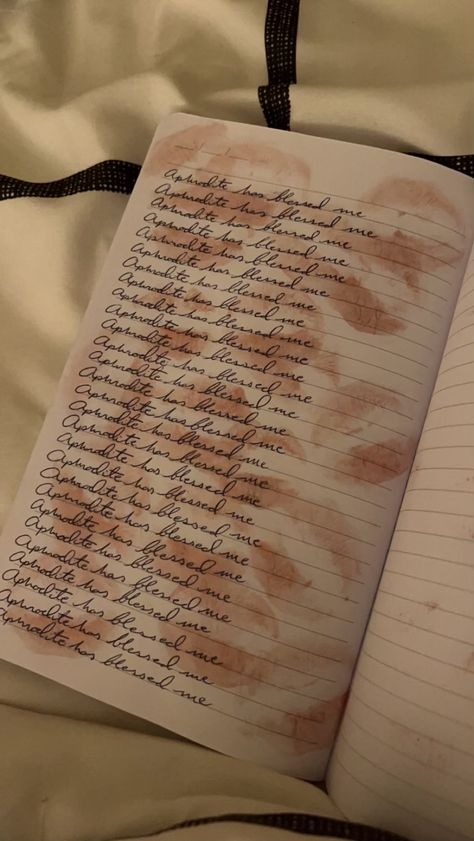 Aphrodite has blessed me
Aphrodite has blessed me
Aphrodite has blessed me
Aphrodite has blessed me
Aphrodite has blessed me
Aphrodite has blessed me
Aphrodite has blessed me
Aphrodite has blessed me
Aphrodite has blessed me
Aphrodite has blessed me
Aphrodite has blessed me
Aphrodite has blessed me
Aphrodite has blessed me
Aphrodite has blessed me
Aphrodite has blessed me
Aphrodite has blessed me
Aphrodite has blessed me
Aphrodite has blessed me
Aphrodite has blessed me
Aphrodite has blessed me
Aphrodite has blessed me
Aphrodite has blessed me
Aphrodite has blessed me
Aphrodite has blessed me
Aphrodite has blessed me
Aphrodite has blessed me
Aphrodite has blessed me
Aphrodite has blessed me